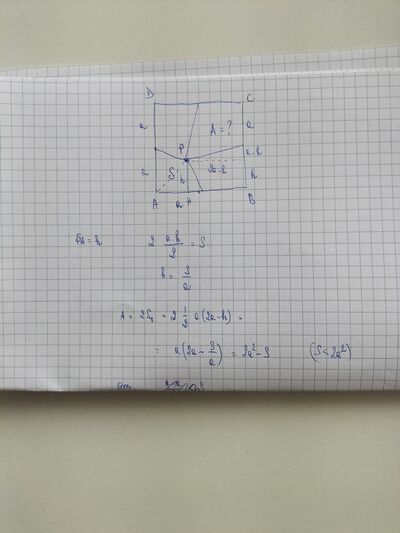 D
C
a
A = ?
a
P
a-h
a
S
h
2a-h
h
A
a
B
= h
2 ah/2 = S
h = S/a
A = 2S₁ = 2 1/2 a(2a-h) =
= a(2a - S/a) = 2a² - S (S < 2a²)